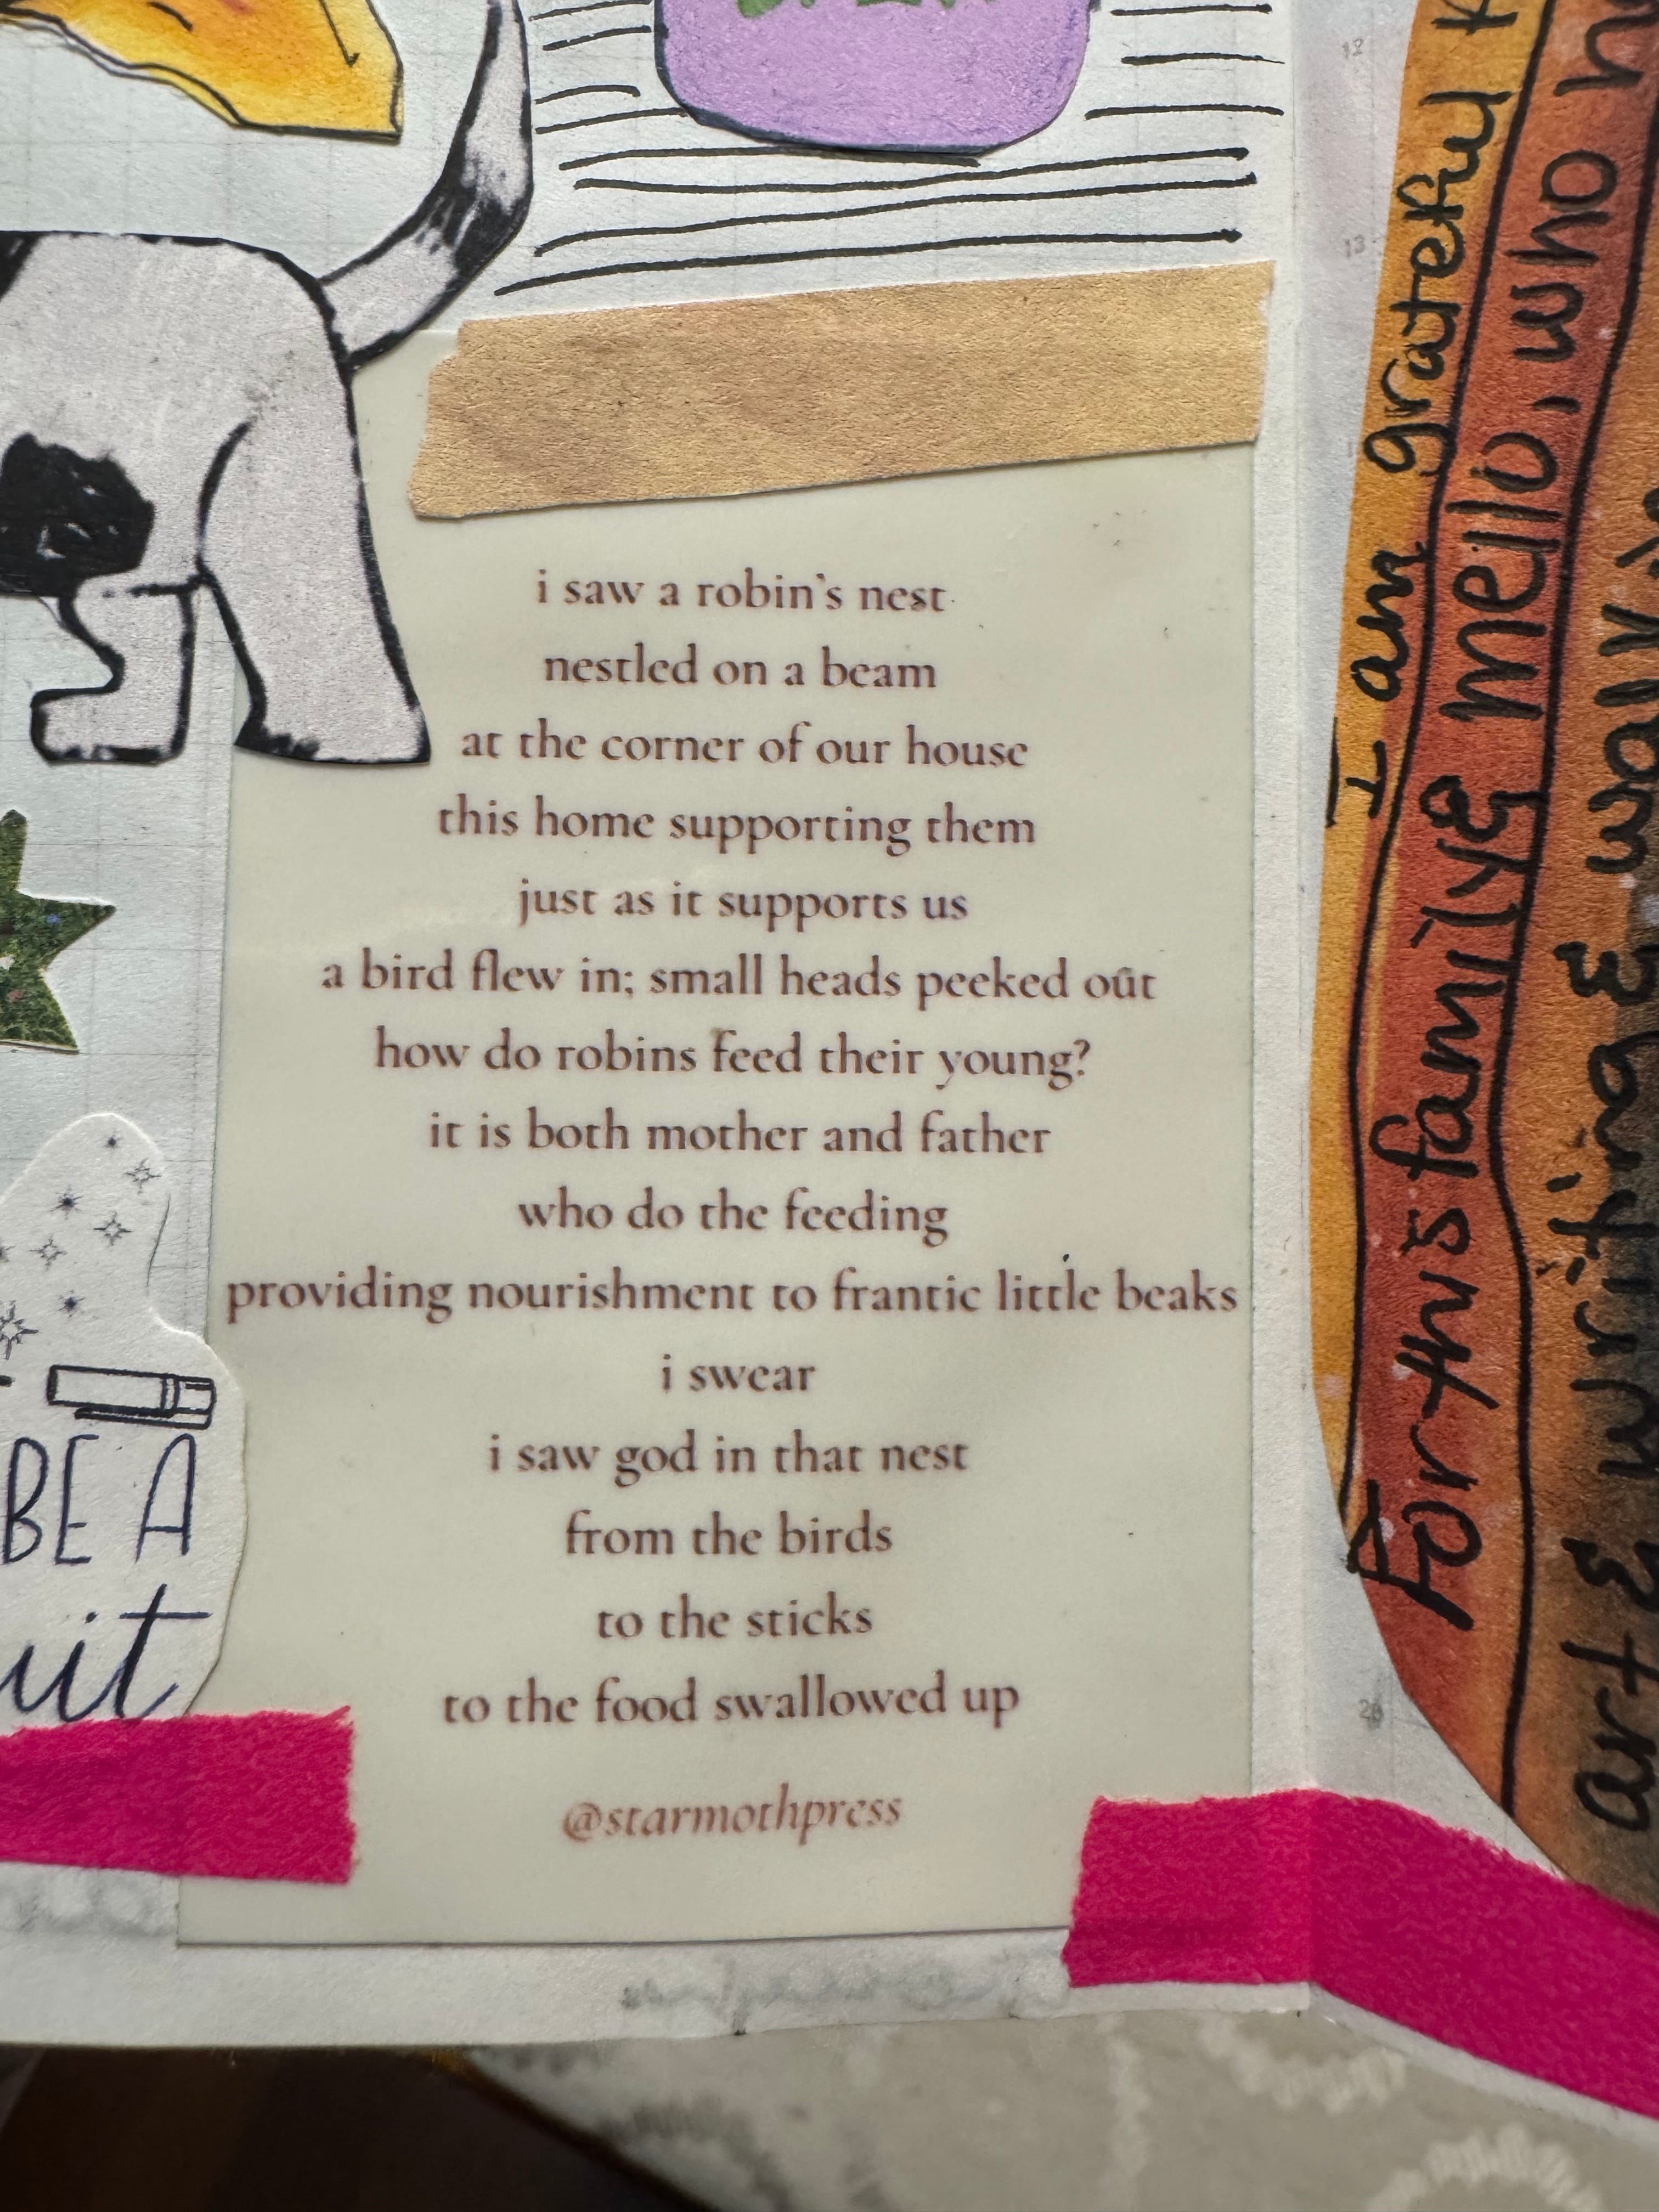 i saw a robin's nest
nestled on a beam
at the corner of our house
this home supporting them
just as it supports us
a bird flew in; small heads peeked out
how do robins feed their young?
it is both mother and father
who do the feeding
providing nourishment to frantic little beaks
i swear
i saw god in that nest
from the birds
to the sticks
to the food swallowed up
@starmothpress
BE A
12
13
20
I am grateful
For this family & mello, who
art & writing & walking